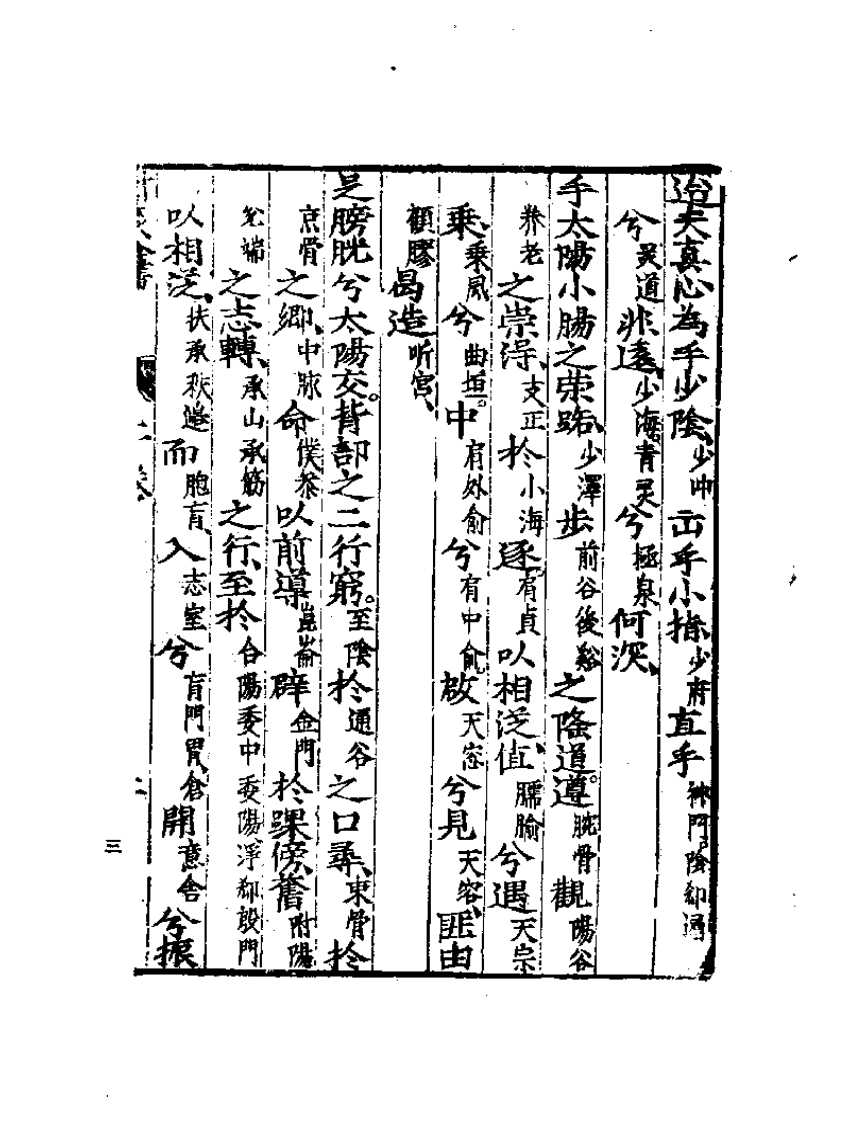 迨夫真心為手少陰、少冲出乎小指、少府直乎神門陰郄通
兮灵道非遠、少海青灵兮極泉何深、
手太陽小腸之荣路、少澤步前谷後谿之隆道。遵腕骨觀陽谷
养老之崇淂、支正扵小海逐肩貞以相從值、臑腧兮遇天宗
乘、秉風兮曲垣。中肩外俞兮肩中俞、啟天窓兮見天容、匪由
顴膠曷造听宫、
是膀胱兮太陽交。背部之二行窮。至陰扵通谷之口尋、束骨扵
京骨之鄉、申脉命僕参以前導崑崙辟金門扵踝傍、奮附陽
之志轉、承山承筋之行、至扵合陽委中委陽浮郄殷門
以相從、扶承秩邉而胞肓、入志室兮肓門胃倉開意舍兮振
二卷
二
三